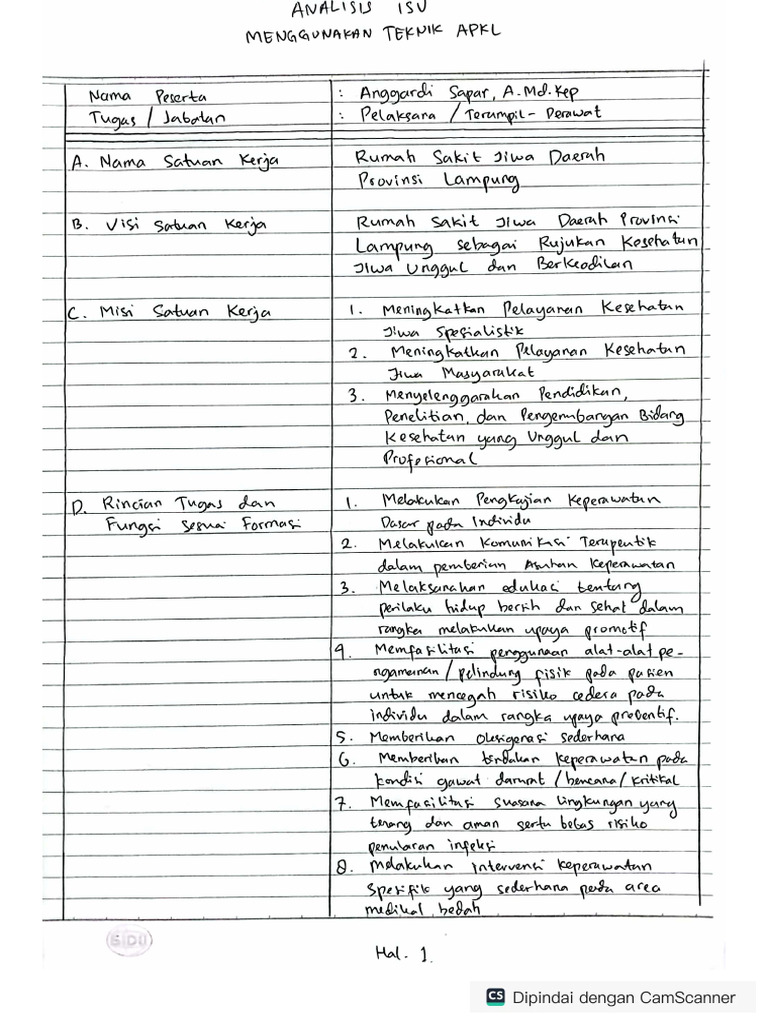 ANALISIS ISU
MENGGUNAKAN TEKNIK APKL
Nama Peserta : Anggardi Sapar, A.Md.Kep
Tugas / Jabatan : Pelaksana / Terampil - Perawat
A. Nama Satuan Kerja Rumah Sakit Jiwa Daerah
Provinsi Lampung
B. Visi Satuan Kerja Rumah Sakit Jiwa Daerah Provinsi
Lampung sebagai Rujukan Kesehatan
Jiwa Unggul dan Berkeadilan
C. Misi Satuan Kerja 1. Meningkatkan Pelayanan Kesehatan
Jiwa Spesialistik
2. Meningkatkan Pelayanan Kesehatan
Jiwa Masyarakat
3. Menyelenggarakan Pendidikan,
Penelitian, dan Pengembangan Bidang
Kesehatan yang Unggul dan
Profesional
D. Rincian Tugas dan 1. Melakukan Pengkajian Keperawatan
Fungsi sesuai Formasi Dasar pada Individu
2. Melakukan Komunikasi Terapeutik
dalam pemberian Asuhan Keperawatan
3. Melaksanakan edukasi tentang
perilaku hidup bersih dan sehat dalam
rangka melakukan upaya promotif
4. Memfasilitasi penggunaan alat-alat pe-
ngamanan / pelindung fisik pada pasien
untuk mencegah risiko cedera pada
individu dalam rangka upaya preventif.
5. Memberikan Oksigenasi sederhana
6. Memberikan tindakan keperawatan pada
kondisi gawat darurat / bencana / kritikal
7. Memfasilitasi suasana lingkungan yang
tenang dan aman serta bebas risiko
penularan infeksi
8. Melakukan intervensi keperawatan
spesifik yang sederhana pada area
medikal bedah
SIDU
Hal. 1.
CS Dipindai dengan CamScanner